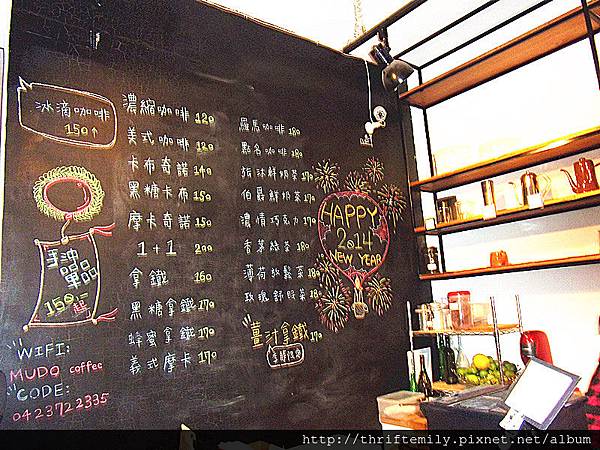 冰滴咖啡
150↑
手沖
單品
150起
WIFI:
MUDO coffee
CODE:
0423722335
濃縮咖啡 120
美式咖啡 120
卡布奇諾 140
黑糖卡布 150
摩卡奇諾 150
1+1 200
拿鐵 160
黑糖拿鐵 170
蜂蜜拿鐵 170
義式摩卡 170
羅馬咖啡 180
點名咖啡 180
鮮奶茶 180
伯爵鮮奶茶 180
濃情巧克力 170
香茅綠茶 180
薄荷紓鬆茶 180
玫瑰舒眠茶 180
薑汁拿鐵 170
HAPPY
2014
NEW YEAR
http://thriftemily.pixnet.net/album